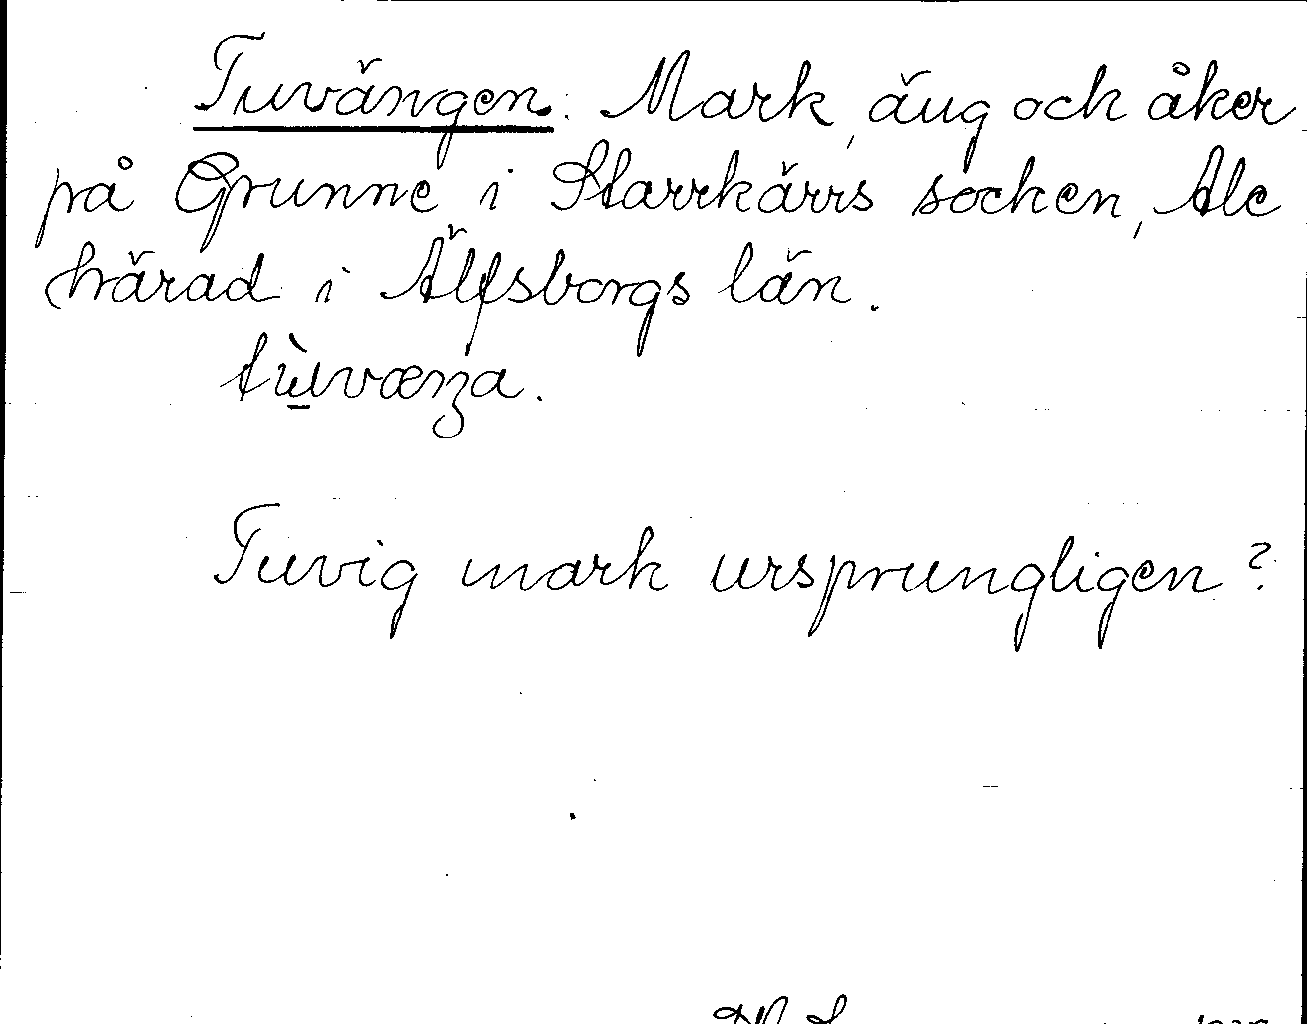 Tuvängen. Mark, äng och åker
på Grunne i Starrkärrs socken, Ale
härad i Älfsborgs län.
tùvæŋa.
Tuvig mark ursprungligen?